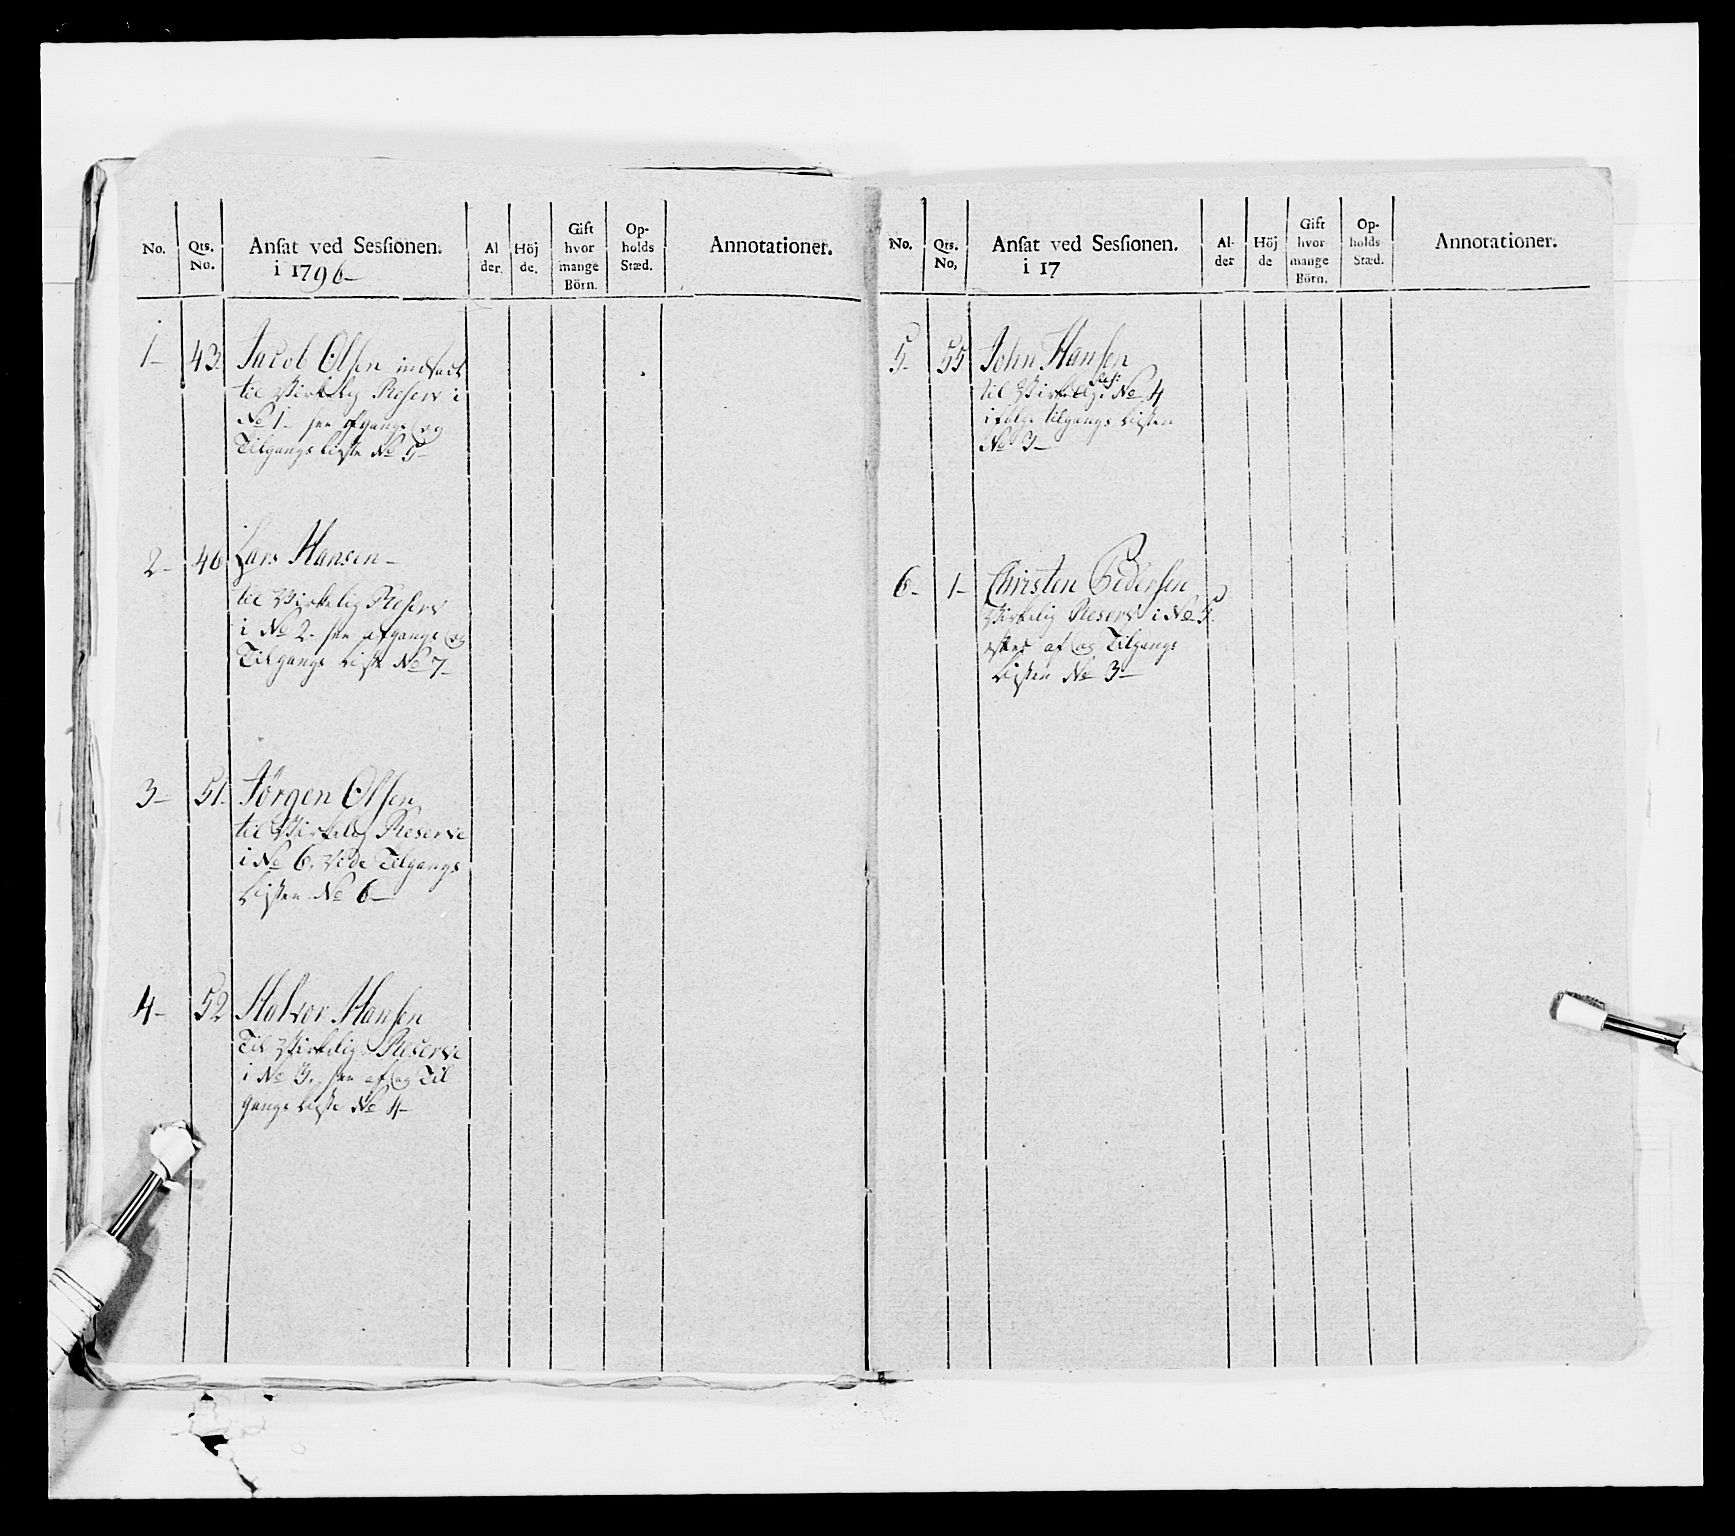 No.
Qts.
No.
Ansat ved Sessionen.
i 1796-
Al
der.
Höj
de.
Gift
hvor
mange
Börn.
Op-
holds
Stæd.
Annotationer.
1-
43.
Jacob Olsen indsadt
til Virkelig Reserv i
No 1- see afgangs og
Tilgangs Liste No 5-
2-
46
Lars Hansen-
til Virkelig Reserv
i No 2- see afgangs og
Tilgangs Liste No 7-
3-
51-
Jørgen Olsen
til Virkelig Reserve
i No 6. Vide Tilgangs
Listen No 6-
4-
52
Halvor Hansen
Til Virkelig Reserve
i No 3. see af og Til
gangs Liste No 4-
No.
Qts.
No,
Ansat ved Sessionen.
i 17
Al-
der
Höj
de
Gift
hvor
mange
Börn.
Op-
holds
Stæd.
Annotationer.
5-
55
John Hansen
til Virkelig Res: No 4
ifølge tilgangs Listen
No 3-
6-
1-
Christen Pedersen
Virkelig Reserv i No 5.
efter af og Tilgangs
Listen No 3-